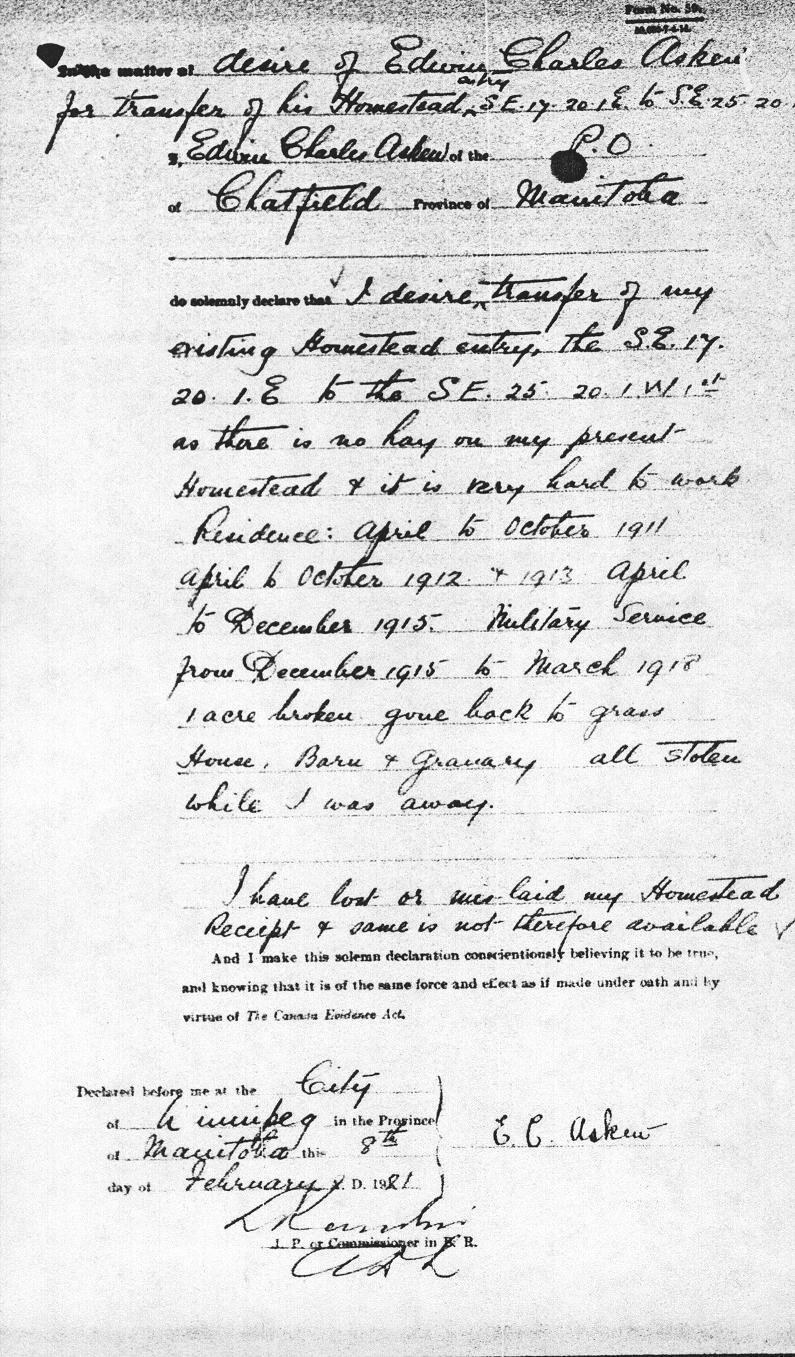 Form No.
In the matter of desire of Edwin Charles Askew
entry
for transfer of his Homestead, S.E. 17. 20 1 E to S.E. 25 20
I, Edwin Charles Askew of the P.O.
of Chatfield Province of Manitoba
do solemnly declare that I desire transfer of my
existing Homestead entry, the S.E. 17.
20. 1. E to the S E. 25. 20. 1. W 1st
as there is no hay on my present
Homestead & it is very hard to work
Residence: April to October 1911
April to October 1912 & 1913 April
to December 1915. Military Service
from December 1915 to March 1918
1 acre broken gone back to grass
House, Barn & Granary all stolen
while I was away.
I have lost or mis-laid my Homestead
Receipt & same is not therefore available
And I make this solemn declaration conscientiously believing it to be true,
and knowing that it is of the same force and effect as if made under oath and by
virtue of The Canada Evidence Act.
Declared before me at the City
of Winnipeg in the Province
of Manitoba this 8th
day of February A. D. 1921
E. C. Askew
J. P. or Commissioner in B. R.